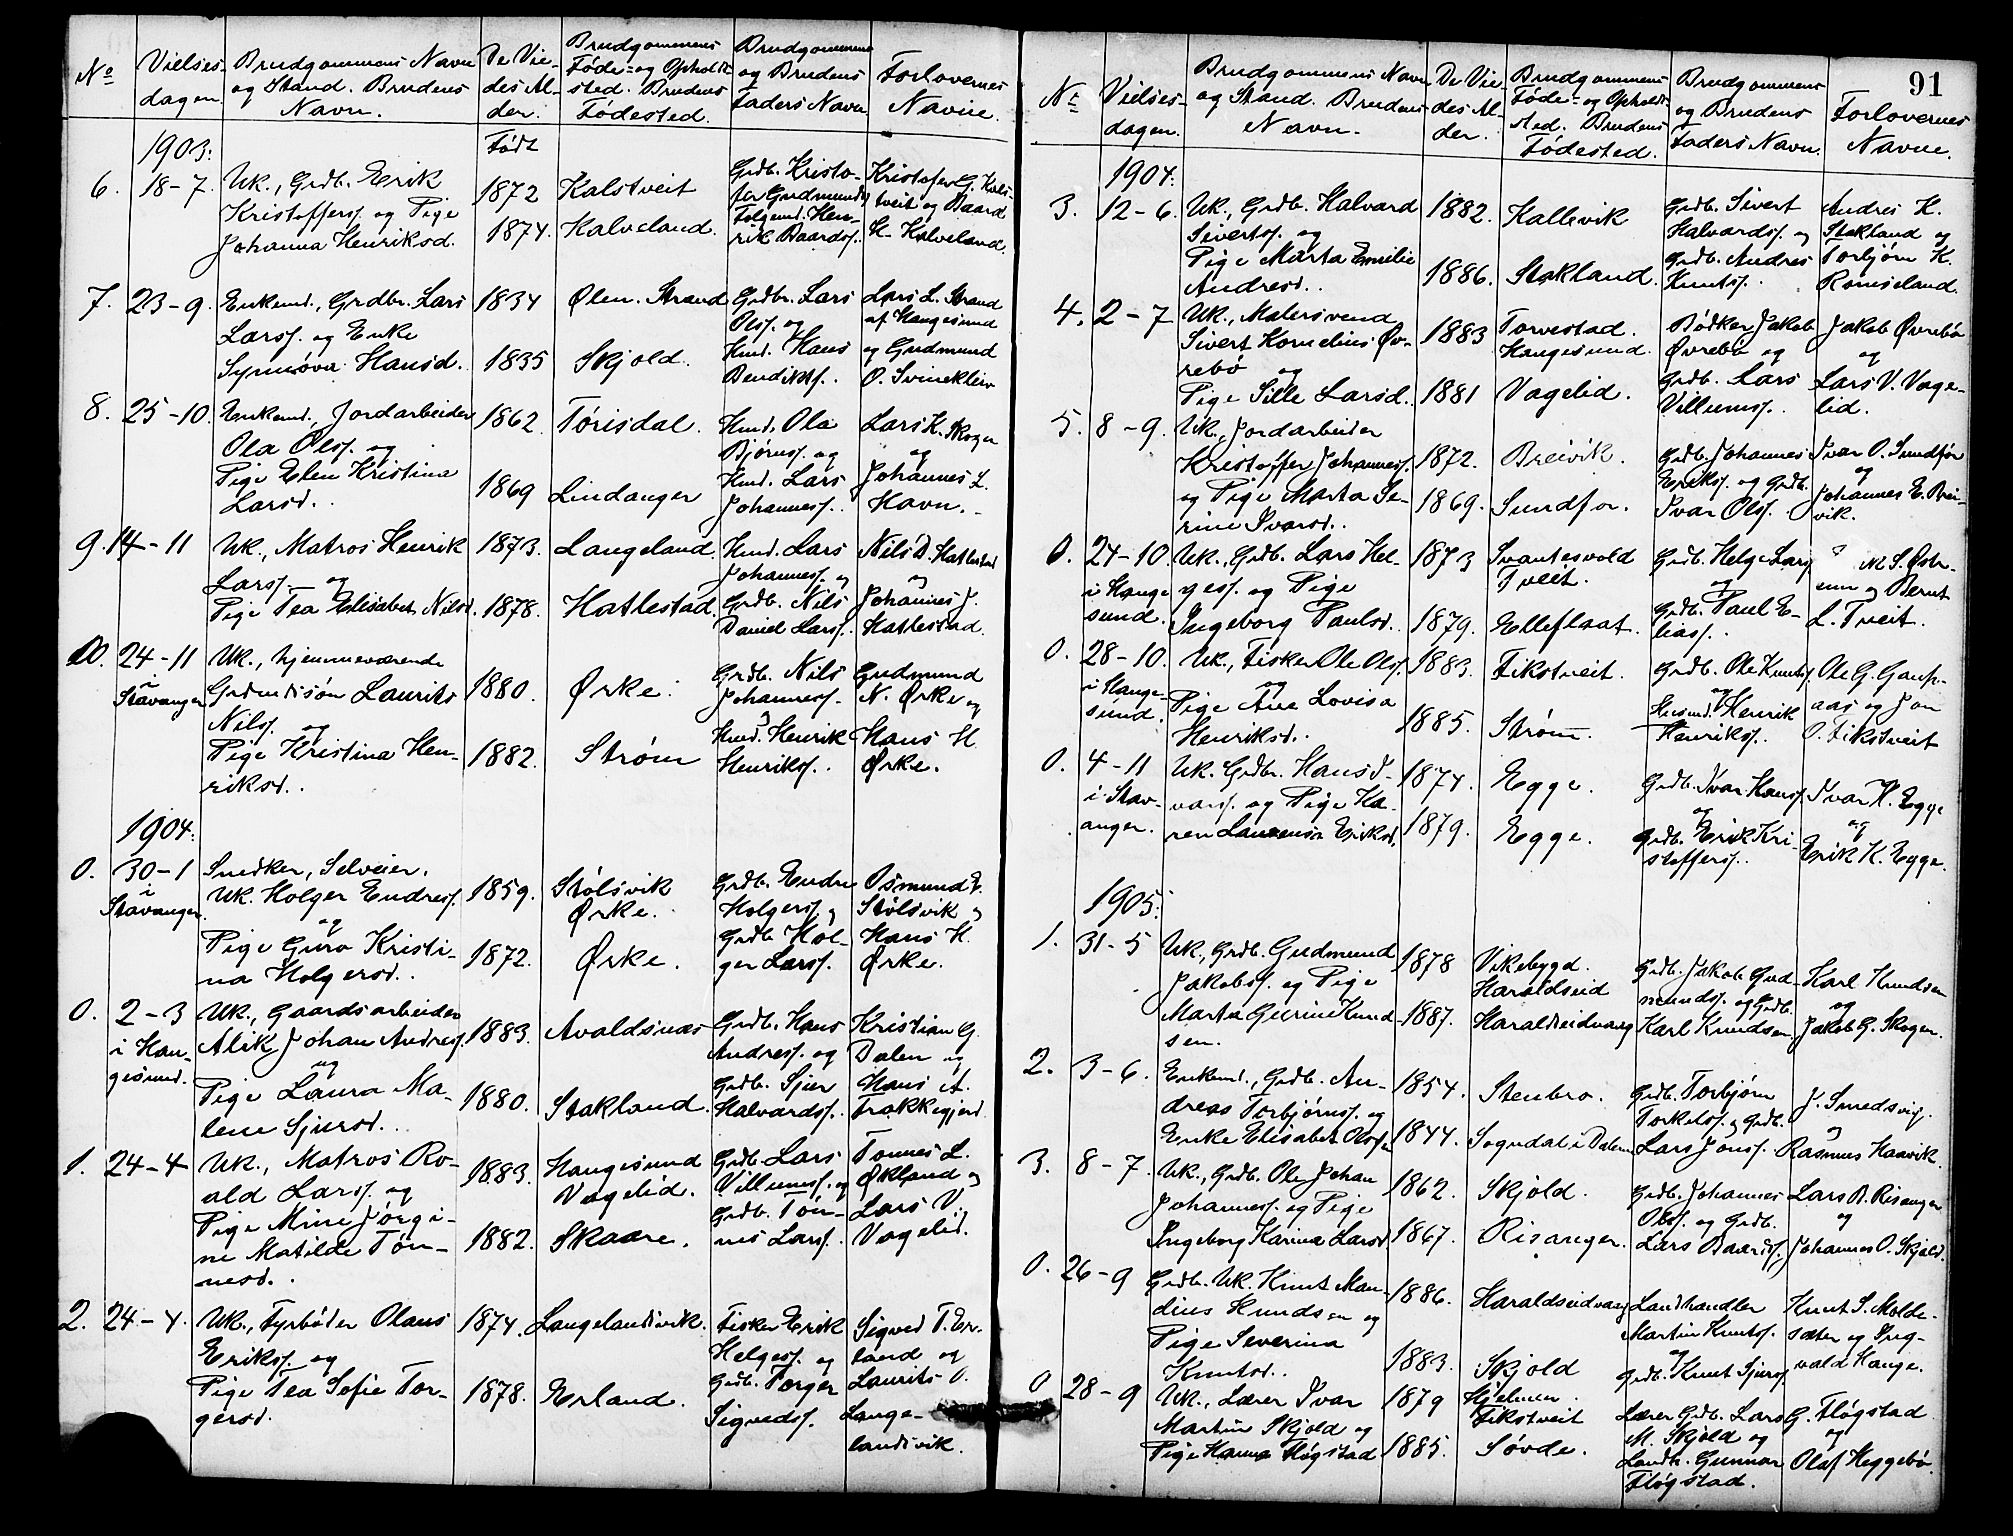 No
Vielses-
dagen.
Brudgommens Navn
og Stand. Brudens
Navn.
De Vie-
des Al-
der.
Brudgommens
Føde- og Opholds-
sted. Brudens
Fødested.
Brudgommens
og Brudens
Faders Navn
Forlovernes
Navne.
1903:
Født
6. 18-7.
Uk., Grdb. Erik
Kristoffers. og Pige
Johanna Henriksd.
1872
1874.
Kalstveit
Kalveland.
Grdb. Kristo-
fer Gudmunds
Folgemd. Hen-
rik Baards..
Kristofer G. Kals-
tveit og Baard
H. Kalveland.
7. 23-9.
Enkemd., Grdbr. Lars
Larss. og Enke
Synnøva Hansd.
1834
1835
Ølen. Strand
Skjold.
Grdbr. Lars
Olss. og
Hmd. Hans
Bendikts..
Lars L. Strand
af Haugesund
og Gudmund
O. Svinekleiv
8. 25-10.
Enkemd., Jordarbeider
Ola Olss. og
Pige Elen Kristina
Larsd..
1862.
1869
Tørisdal.
Lindanger
Hmd. Ola
Bjørns. og
Hmd. Lars
Johanness..
Lars K. Skogen
og
Johannes L.
Havn.
9. 14-11
Uk., Matros Henrik
Larss. og
Pige Tea Elisabet Nilsd.
1873.
1878.
Langeland.
Hatlestad
Hmd. Lars
Johanness. og
Grdb. Nils
Daniel Larss.
Nils D. Hatlestad
og
Johannes J.
Hatlestad.
10. 24-11
i
Stavanger
Uk., hjemmeværende
Grdmdsøn Laurits
Nilss. og
Pige Kristina Hen-
riksd..
1880.
1882.
Ørke.
Strøm
Grdb. Nils
Johanness.
og
Hmd. Henrik
Henriks..
Gudmund
N. Ørke og
Hans H.
Ørke.
1904:
0. 30-1
i
Stavanger.
Snedker, Selveier.
Uk. Holger Endress.
og
Pige Guro Kristi-
na Holgersd..
1859.
1872.
Stølsvik
Ørke.
Ørke.
Grdb. Endre
Holgerss. og
Grdb. Hol-
ger Larss.
Osmund E.
Stølsvik og
Hans H.
Ørke.
0. 2-3
i Hau-
gesund.
Uk., Gaardsarbeider
Alik Johan Andress.
og
Pige Laura Ma-
lene Sjursd..
1883.
1880.
Avaldsnæs
Stakland.
Grdb. Hans
Andress. og
Grdb. Sjur
Halvardss.
Kristian G.
Dalen og
Hans A.
Frakkagjerd
1. 24-4
Uk., Matros Ro-
ald Larss. og
Pige Mine Jørgi-
ne Matilde Tøn-
nesd..
1883.
1882.
Haugesund
Vagelid.
Skaare.
Grdb. Lars
Villumss. og
Grdb. Tøn-
nes Larss.
Tønnes L.
Økland og
Lars V.
Vagelid.
2. 24-4.
Uk., Fyrbøder Olaus
Erikss. og
Pige Tea Sofie Tor-
gersd.
1874.
1878.
Langelandsvik.
Erland.
Fisker Erik
Helgess. og
Grdb. Torger
Sigvedss.
Sigved T. Er-
land og
Laurits O.
Lange-
landsvik.
91
No
Vielses-
dagen.
Brudgommens Navn
og Stand. Brudens
Navn.
De Vie-
des Al-
der.
Brudgommens
Føde- og Opholds-
sted. Brudens
Fødested.
Brudgommens
og Brudens
Faders Navn.
Forlovernes
Navne.
1904:
3. 12-6.
Uk., Grdb. Halvard
Siverts. og
Pige Marta Emilie
Andresd..
1882.
1886.
Kallevik
Stakland.
Grdb. Sivert
Halvardss. og
Grdb. Andres
Knuts..
Andres K.
Stakland og
Torbjørn K.
Romseland.
4. 2-7
Uk., Malersvend
Sivert Kornelius Øv-
rebø og
Pige Sille Larsd..
1883
1881
Torvestad.
Haugesund.
Vagelid.
Bødker Jakob
Øvrebø og
Grdb. Lars
Villums..
Jakob Øvrebø
og
Lars V. Vage-
lid.
5. 8-9.
Uk., Jordarbeider
Kristoffer Johanness.
og Pige Marta Se-
rine Ivarsd..
1872.
1869.
Breivik.
Sundfør.
Grdb. Johannes
Erikss. og Grdb.
Ivar Olss.
Ivar O. Sundfør
og
Johannes E. Brei-
vik.
0. 24-10
i Hauge
sund.
Uk., Grdb. Lars Hel-
gess. og Pige
Ingeborg Paulsd.
1873
1879.
Svartesvold
Tveit.
Elleflaat.
Grdb. Helge Larss
og
Grdb. Paul E-
lias..
S. Østr-
em og Bernt
L. Tveit.
0. 28-10.
i Hauge-
sund.
Uk., Fisker Ole Olss.
og
Pige Ane Lovisa
Henriksd..
1883.
1885.
Fikstveit.
Strøm.
Grdb. Ole Knuts.
og
Husmd. Henrik
Henriks..
Ole G. Gaup-
aas og Jon
O. Fikstveit
0. 4-11
i Stav-
anger.
Uk. Grdbr. Hans I-
varss. og Pige Ka-
ren Laurensa Eriksd.
1874.
1879.
Egge.
Egge.
Grdb. Ivar Hanss.
og
Grdb. Erik Kri-
stofferss..
Ivar H. Egge
og
Erik K. Egge.
1905:
1. 31-5
Uk., Grdb. Gudmund
Jakobss. og Pige
Marta Gurine Knud-
sen.
1878
1887.
Vikebygd.
Haraldseid
Haraldseidvaag
Grdb. Jakob Gud-
munds. og Grdb.
Karl Knudsen
Karl Knudsen
og
Jakob G. Skogen.
2. 3-6.
Enkemd., Grdb. An-
dreas Torbjørnss. og
Enke Elisabet Olsen
1854.
1844.
Stenbro.
Sogndal i Dalene
Grdb. Torbjørn
Torkelss. og Grdb.
Lars Jonss.
J. Smedsvig.
og
Rasmus Haavik.
3. 8-7.
Uk., Grdb. Ole Johan
Johanness. og Pige
Ingeborg Karina Larsd
1862.
1867.
Skjold.
Risanger.
Grdb. Johannes
Olss. og Grdb.
Lars Baardss.
Lars B. Risanger
og
Johannes O. Skjold.
0. 26-9
Grdb. Uk. Knut Man-
dius Knudsen og
Pige Severina
Knutsd..
1886.
1883.
Haraldseidvaag
Skjold
Landhandler
Martin Knuts.
og
Grdb. Knut Sjurss.
Knut S. Molde-
sæter og Sig-
vald Hauge.
0 28-9
Uk., Lærer Ivar
Martin Skjold og
Pige Hanna Fløgstad
1879
1885.
Hjelmen.
Fikstveit
Søvde.
Lærer Grdb. Lars
M. Skjold og
Landh. Gunnar
Fløgstad.
G. Fløgstad
og
Olaf Heggebø